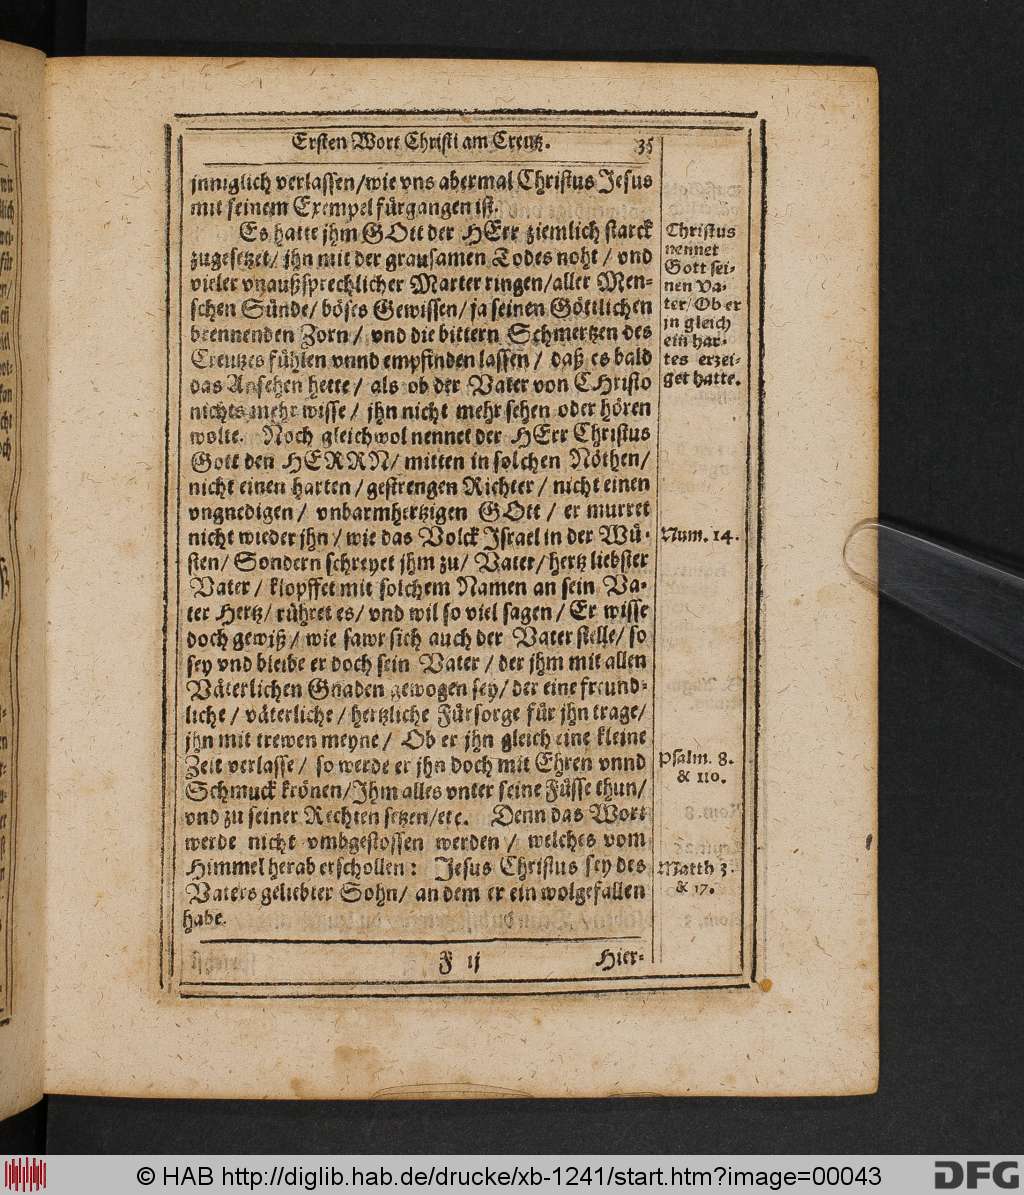 Ersten Wort Christi am Creutz. 35
jnniglich verlassen/wie vns abermal Christus Jesus
mit seinem Exempel fürgangen ist.
Es hatte jhm GOtt der HErr ziemlich starck
zugesetzet/ jhn mit der grausamen Todes noht / vnd
vieler vnaußsprechlicher Marter ringen/aller Men-
schen Sünde/ böses Gewissen/ ja seinen Göttlichen
brennenden Zorn/ vnd die bittern Schmertzen des
Creutzes fühlen vnnd empfinden lassen/ daß es bald
das Ansehen hette/ als ob der Vater von CHristo
nichts mehr wisse/ jhn nicht mehr sehen oder hören
wolte. Noch gleichwol nennet der HErr Christus
Gott den HERRN/ mitten in solchen Nöthen/
nicht einen harten/ gestrengen Richter/ nicht einen
vngnedigen/ vnbarmhertzigen GOtt/ er murret
nicht wieder jhn/ wie das Volck Jsrael in der Wü-
sten/ Sondern schreyet jhm zu/ Vater/hertz liebster
Vater/ klopffet mit solchem Namen an sein Va-
ter Hertz/ rühret es/ vnd wil so viel sagen/ Er wisse
doch gewiß/ wie sawr sich auch der Vater stelle/ so
sey vnd bleibe er doch sein Vater/ der jhm mit allen
Väterlichen Gnaden gewogen sey/ der eine freund-
liche/ väterliche/ hertzliche Fürsorge für jhn trage/
jhn mit trewen meyne/ Ob er jhn gleich eine kleine
Zeit verlasse/ so werde er jhn doch mit Ehren vnnd
Schmuck krönen/Jhm alles vnter seine Füsse thun/
vnd zu seiner Rechten setzen/etc. Denn das Wort
werde nicht vmbgestossen werden/ welches vom
Himmel herab erschollen: Jesus Christus sey des
Vaters geliebter Sohn/ an dem er ein wolgefallen
habe.
F ij Hier-
Christus
nennet
Gott sei-
nen Va-
ter/Ob er
jn gleich
ein har-
tes erzei-
get hatte.
Num. 14.
Psalm. 8.
& 110.
Matth 3.
& 17.
© HAB http://diglib.hab.de/drucke/xb-1241/start.htm?image=00043
DFG